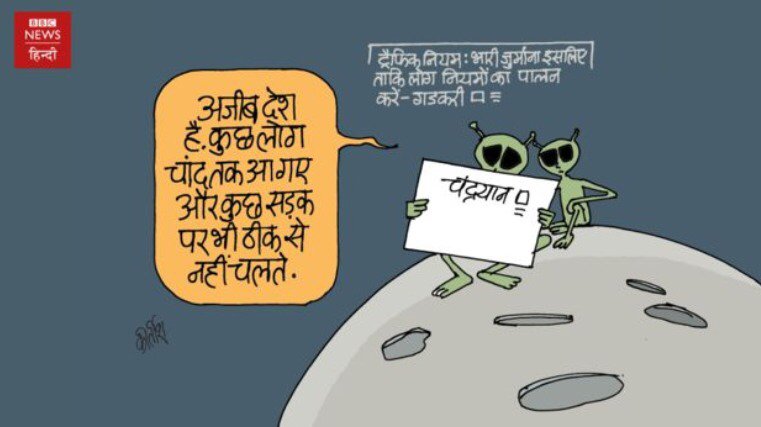 BBC
NEWS
हिन्दी
ट्रैफिक नियम: भारी जुर्माना इसलिए
ताकि लोग नियमों का पालन
करें-गडकरी
अजीब देश
है. कुछ लोग
चांद तक आ गए
और कुछ सड़क
पर भी ठीक से
नहीं चलते.
चंद्रयान
कीर्तिश